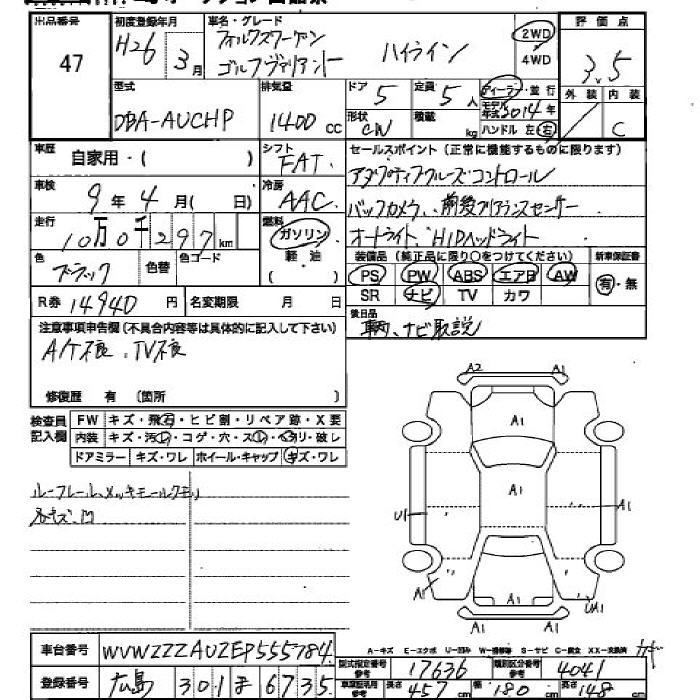 出品番号
47
初度登録年月
H26 3月
車名・グレード
フォルクスワーゲン
ゴルフヴァリアント ハイライン
2WD
4WD
評価点
3.5
外装 内装
C
型式
DBA-AUCHP
排気量
1400cc
ドア 5
定員 5人
ディーラー・並行
モデル年式 2014年
形状 CW
積載 kg
ハンドル 左 右
車歴 自家用・( )
シフト
FAT
セールスポイント(正常に機能するものに限ります)
アダプティブクルーズコントロール
バックカメラ、前後クリアランスセンサー
オートライト、HIDヘッドライト
車検 9年4月( 日)
冷房
AAC
走行 10万0千297km
燃料
ガソリン
軽油
( )
色 ブラック
色替
色コード
装備品(純正品に限り○をつけてください)
新車保証書
PS PW ABS エアB AW
有・無
SR ナビ TV カワ
R券 14940円
名変期限 月 日
後日品
注意事項申告欄(不具合内容等は具体的に記入して下さい)
A/T不良、TV不良
修復歴 有 (箇所 )
検査員
記入欄
FW キズ・飛石・ヒビ割・リペア跡・X要
内装 キズ・汚レ・コゲ・穴・スレ・ヘタリ・破レ
ドアミラー キズ・ワレ ホイール・キャップ キズ・ワレ
ルーフレール、メッキモールクモリ
A2 A1
A1
A1
U1 A1
A1 A1 UA1
A1 A1
車台番号 WVWZZZAUZEP555784
A-キズ E-エクボ U-凹み W-補修跡 S-サビ C-腐食 XX-交換済
型式指定番号
参考
17636
類別区分番号
参考
4041
登録番号 広島 301 ま 6735
車車証記載
参考
長さ 457cm 幅 180cm 高さ 148cm